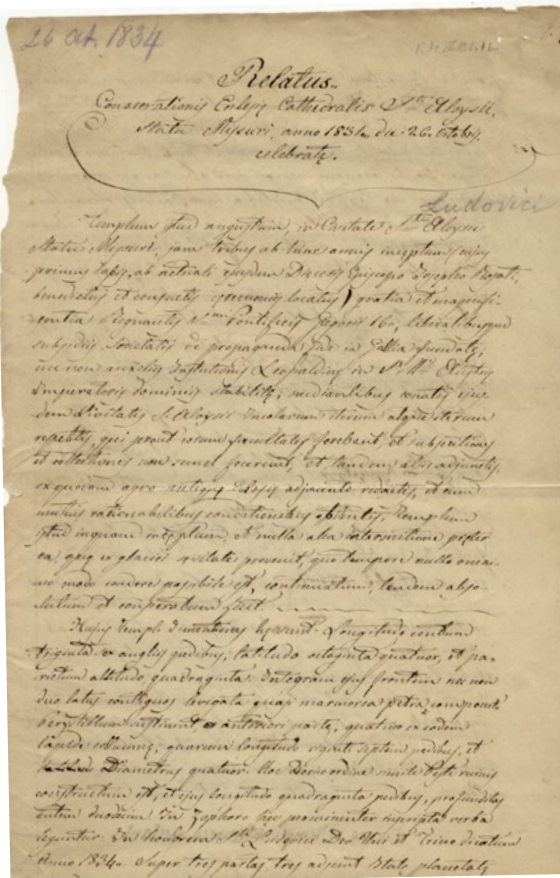 26 at. 1834
Relatus
Consecrationis Ecclesię Cathedralis Sti Aloysii,
Statu Missuri, anno 1834, die 26. Octobris,
celebratę.
Ludovici
Templum istud augustum, in Civitate Sti Aloysii
Statu Missuri, jam tribus ab hinc annis inceptum cujus
primus lapis, ab actuali ejusdem Diœcesis Episcopo Josepho Rosati,
benedictus et consuetis ceremoniis locatus) gratia et magnifi-
centia Regnantis Pontificis Gregorii 16i, liberalibusque
subsidiis Societatis de propaganda fide in Gallia fundatę,
nec non auxiliis Institutionis Leopoldinę in
Imperatoris dominiis stabilitę; mediantibus conatis ejus-
dem Civitatis St Aloysii Incolarum iterum atque iterum
repetitis, qui prout eorum facultates ferebant, et subscriptiones
et collectiones non semel fecerunt, et tandem aliis adjunctis,
ex quodam agro antiquę Eclesię adjacente redactis, et cum
multis rationabilibus conditionibus obtentis, Templum
istud inquam inceptum, et nulla alia intermissione pręter
ea, quę ex glaciei pervenit, quo tempore nullo omni-
no modo condere possibile est, continuatum, tandem abso-
lutum et comperatum fuit.
Hujus Templi Dimensiones hę sunt. Longitudo centum
triginta anglis pedibus, latitudo octoginta quatuor, et pa-
rietum altitudo quadraginta. Integram ejus frontem nec non
duo latus contiguos levigata quasi marmorea petra componit
sustinent anteriori parte, quatuor eodem
lapide collumnę, quarum longitudo viginti septem pedibus, et
Diametrus quatuor. Hoc Dorico ordine
constructum est, et ejus longitudo quadraginta pedibus, profunditas
autem duodecim. In Zophoro hęc prominenter insculpta verba
leguntur: In honorem Sti Ludovici Deo Uni et Trino dicatum
Anno 1834. Super tres portas tres adsunt